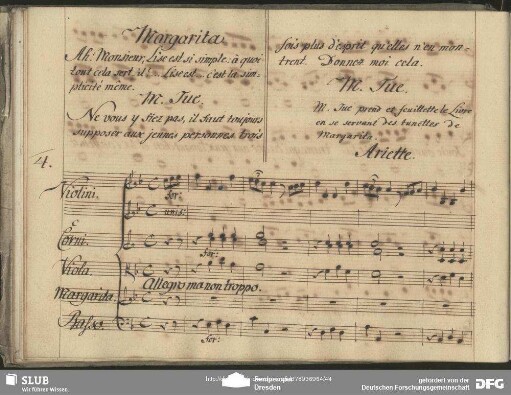 Margarita.
Ah! Monsieur, Lise est si simple: à quoi
tout cela sert il? Lise est... c'est la sim-
plicité même.
M. Tue.
Ne vous y fiez pas, il faut toujours
supposer aux jeunes personnes trois
fois plus d'esprit qu'elles n'en mon-
trent. Donnez moi cela.
M. Tue.
M. Tue prend et feuillette le Livre
en se servant des lunettes de
Margarita.
Ariette.
4.
Violini.
for:
unis:
Corni.
for:
Viola.
Allegro ma non troppo.
Margarita.
Basso.
for:
SLUB
Wir führen Wissen.
Dresden
gefördert von der
Deutschen Forschungsgemeinschaft
DFG